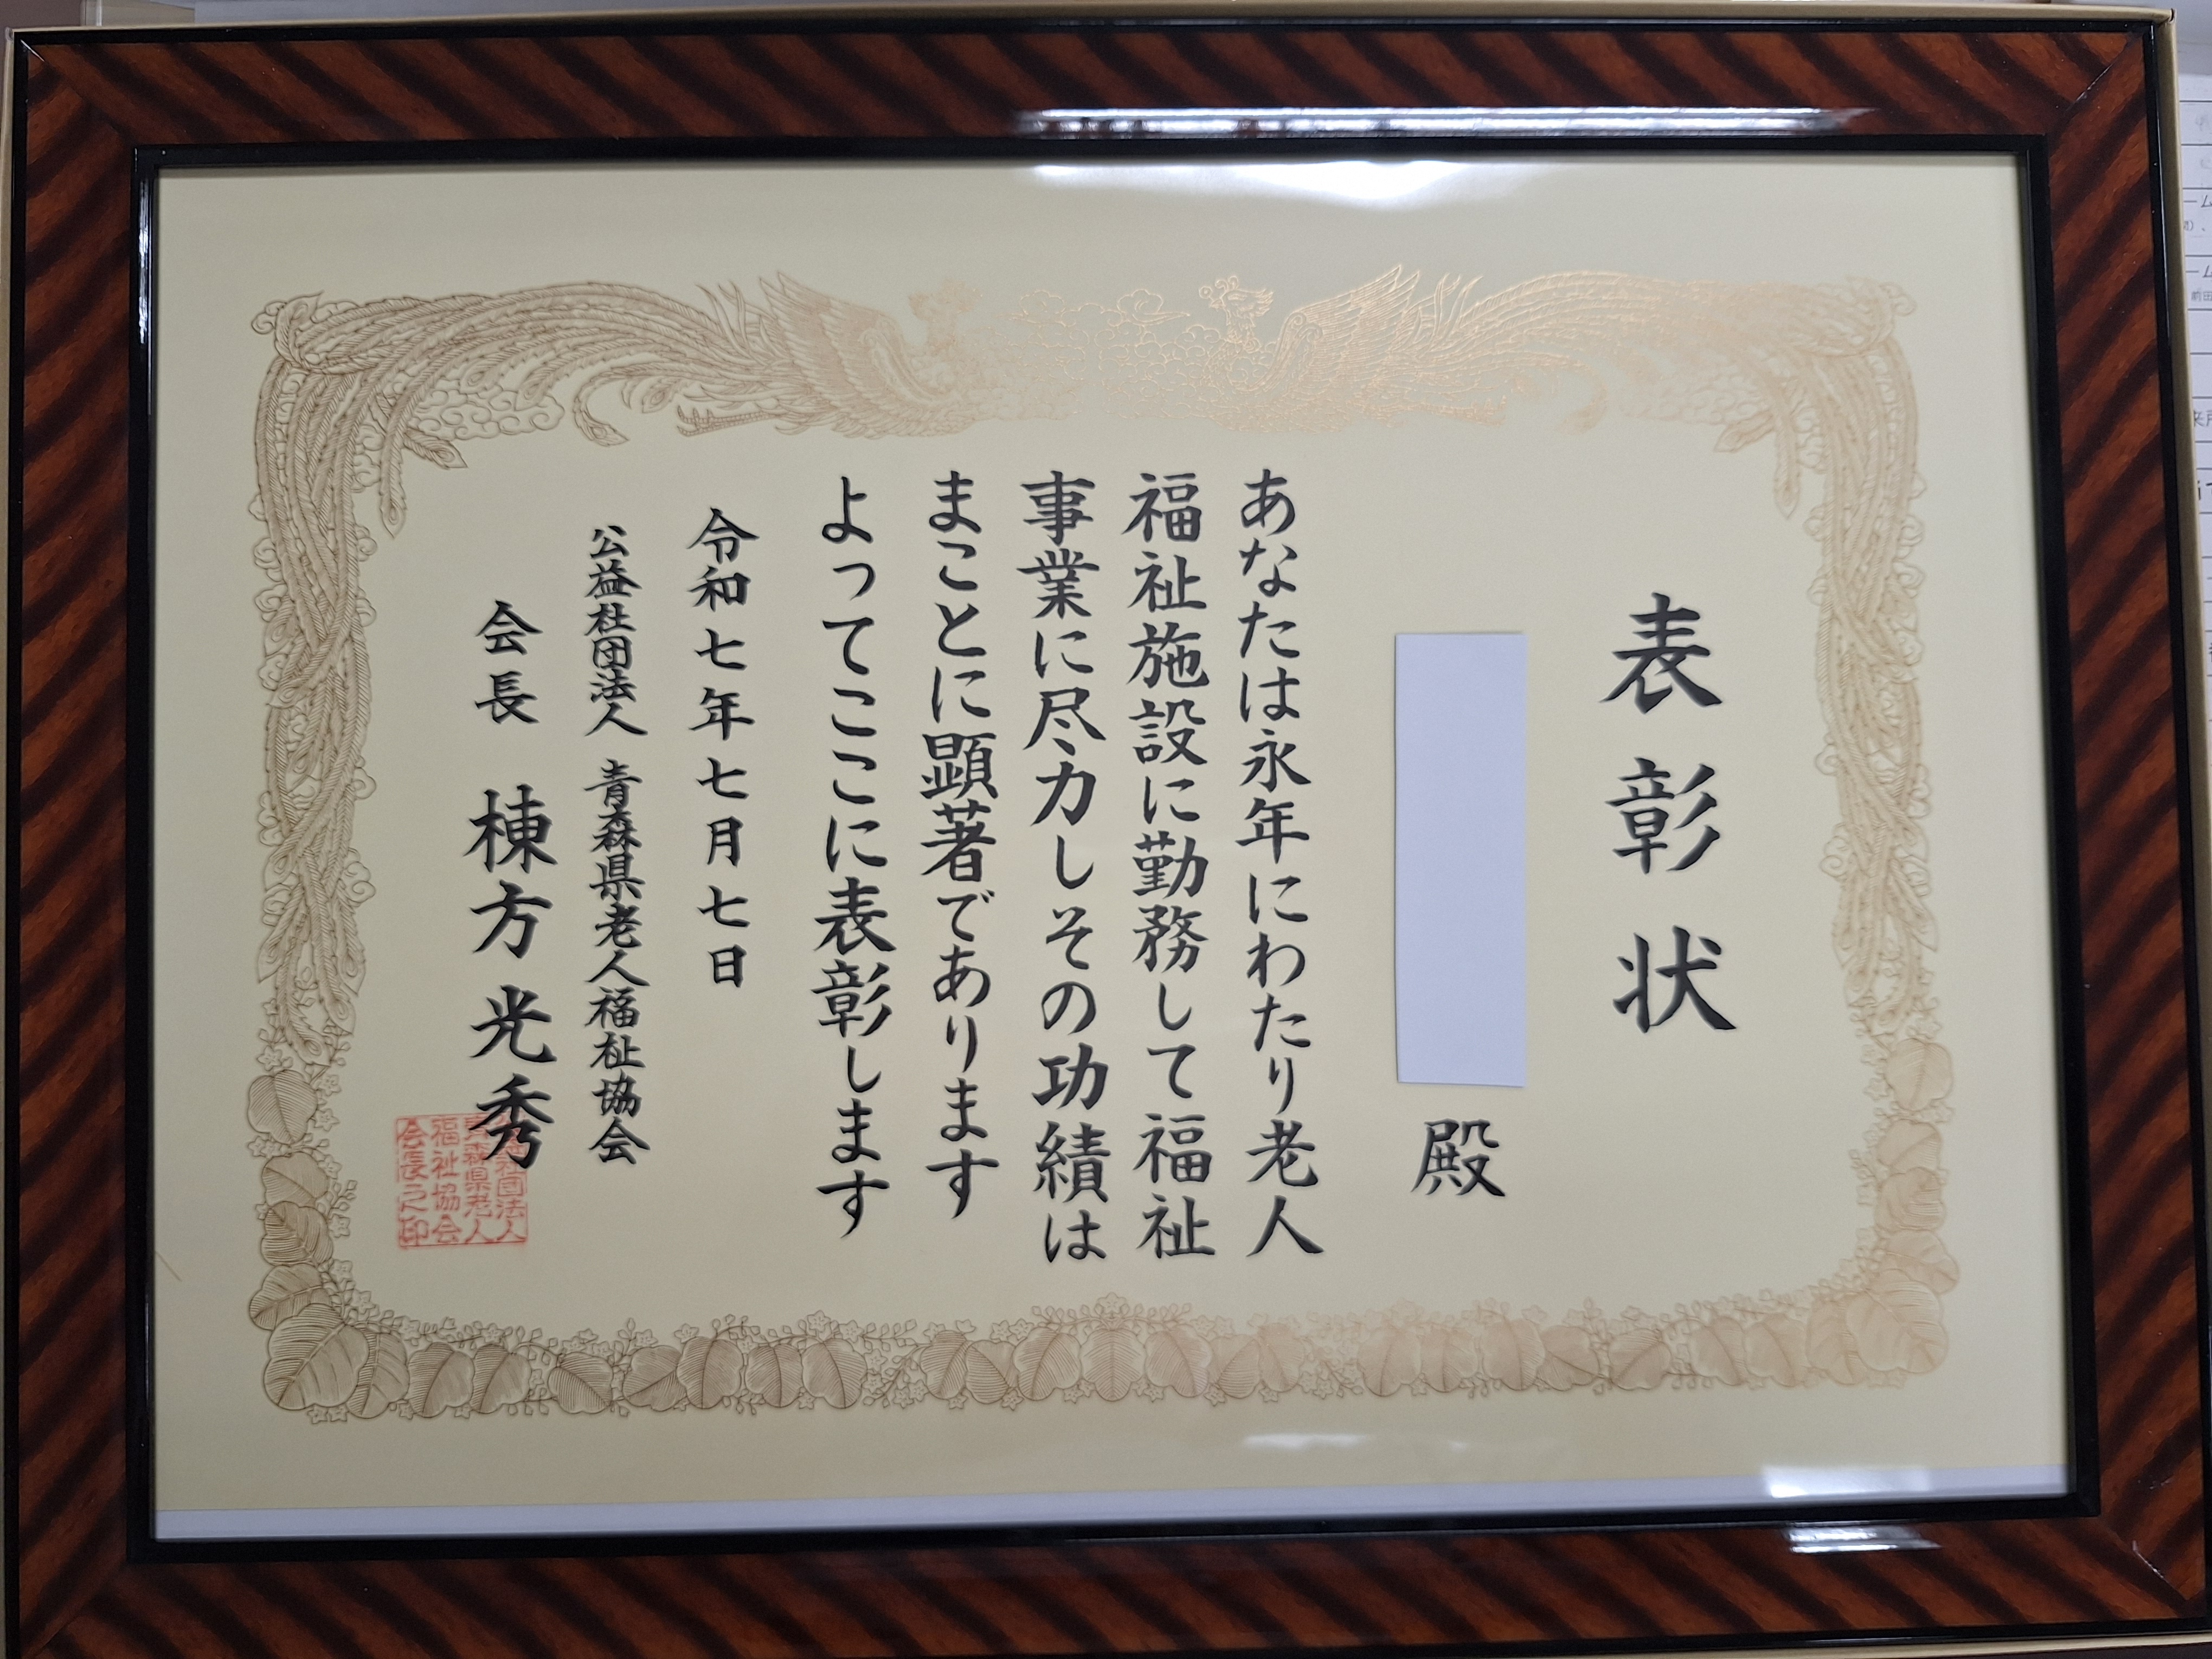 表彰状
殿
あなたは永年にわたり老人
福祉施設に勤務して福祉
事業に尽力しその功績は
まことに顕著であります
よってここに表彰します
令和七年七月七日
公益社団法人 青森県老人福祉協会
会長 棟方光秀
社団法人
森県老人
福祉協会
会長之印